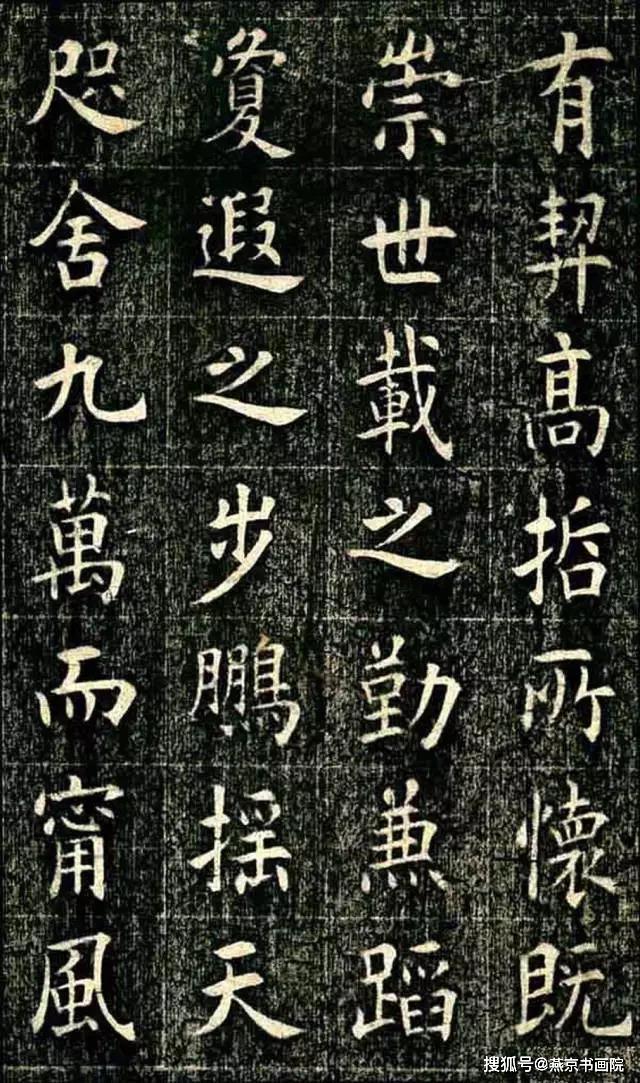 有契高哲所懷既
崇世載之勤兼蹈
夐遐之步鵬搖天
咫舍九萬而甯風
搜狐号@燕京书画院